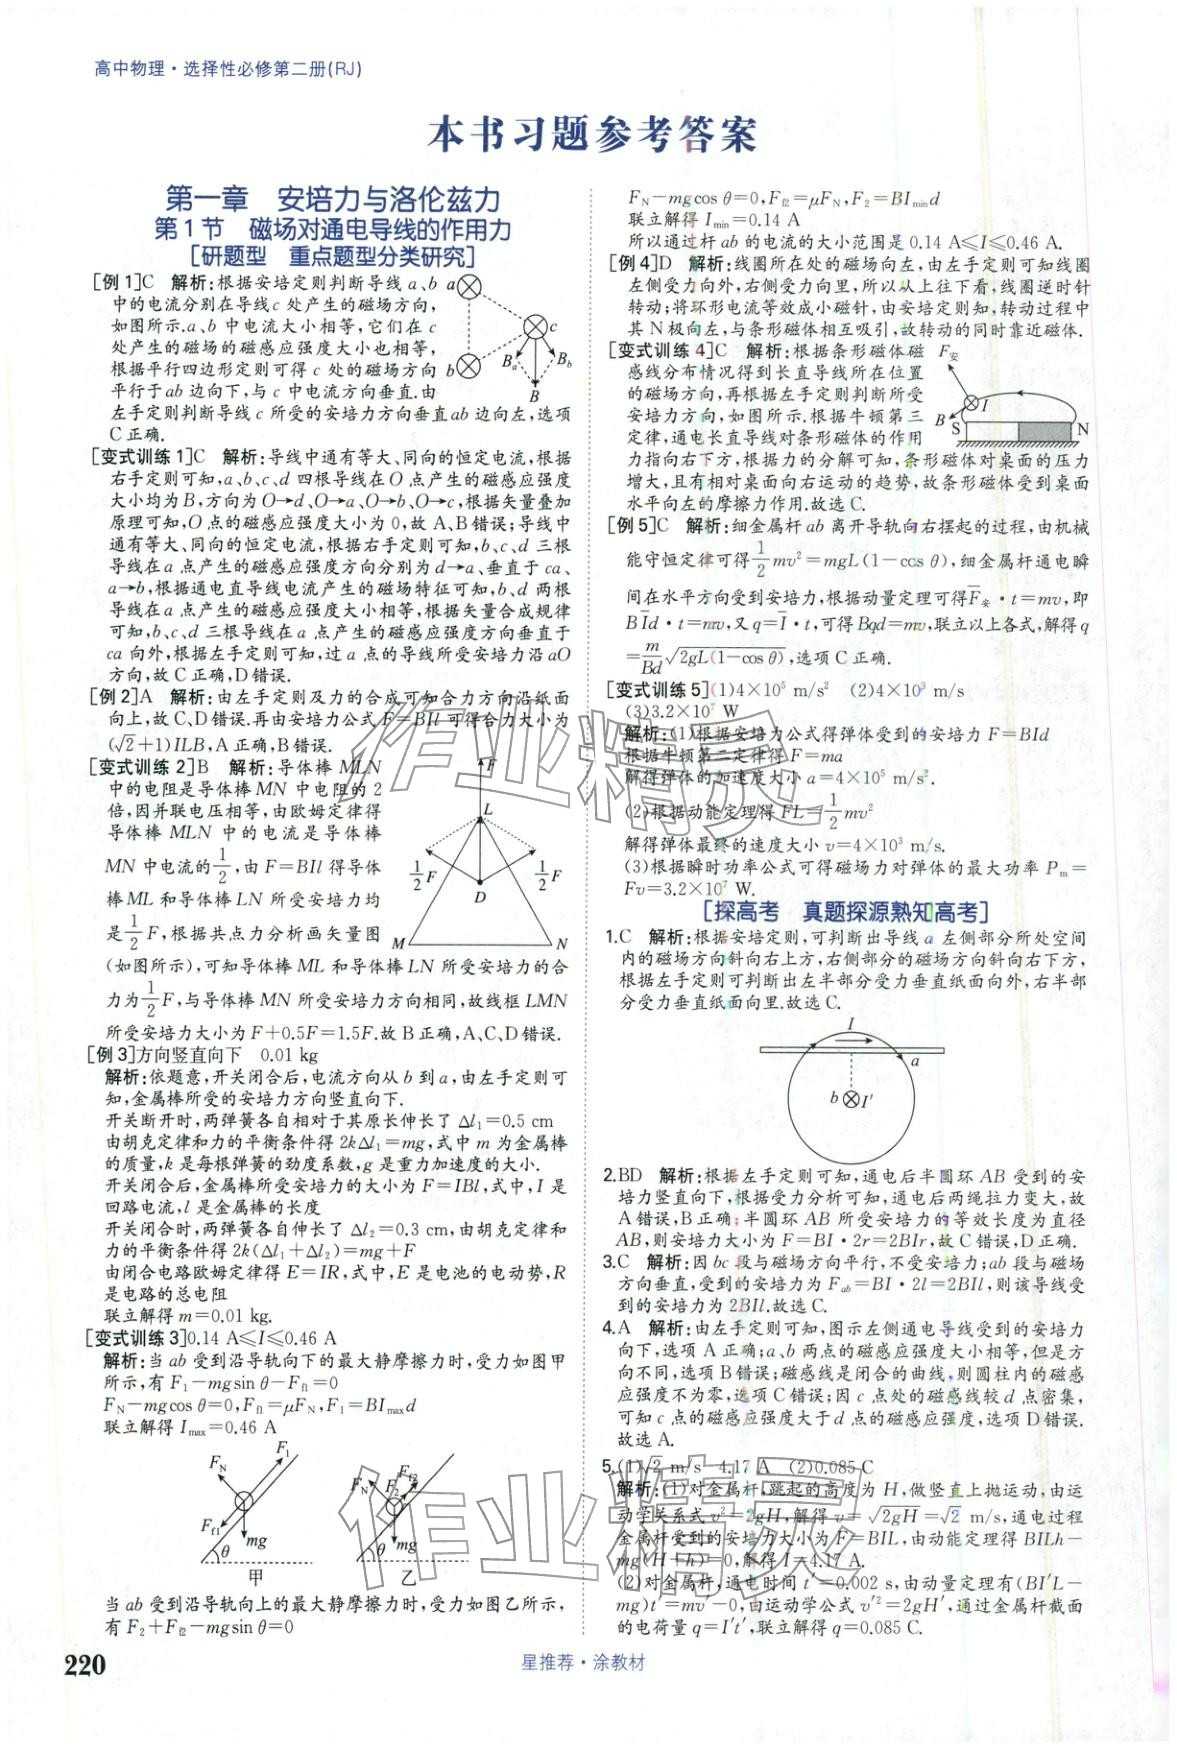 高中物理·选择性必修第二册(RJ)
本书习题参考答案
第一章 安培力与洛伦兹力
第1节 磁场对通电导线的作用力
[研题型 重点题型分类研究]
[例1]C 解析:根据安培定则判断导线a、b
中的电流分别在导线c处产生的磁场方向,
如图所示.a、b中电流大小相等,它们在c
处产生的磁场的磁感应强度大小也相等,
根据平行四边形定则可得c处的磁场方向
平行于ab边向下,与c中电流方向垂直.由
左手定则判断导线c所受的安培力方向垂直ab边向左,选项
C正确.
a
b
c
Bₐ
B_b
B
[变式训练1]C 解析:导线中通有等大、同向的恒定电流,根据
右手定则可知,a、b、c、d四根导线在O点产生的磁感应强度
大小均为B,方向为O→d、O→a、O→b、O→c,根据矢量叠加
原理可知,O点的磁感应强度大小为0,故A、B错误;导线中
通有等大、同向的恒定电流,根据右手定则可知,b、c、d三根
导线在a点产生的磁感应强度方向分别为d→a、垂直于ca、
a→b,根据通电直导线电流产生的磁场特征可知,b、d两根
导线在a点产生的磁感应强度大小相等,根据矢量合成规律
可知,b、c、d三根导线在a点产生的磁感应强度方向垂直于
ca向外,根据左手定则可知,过a点的导线所受安培力沿aO
方向,故C正确,D错误.
[例2]A 解析:由左手定则及力的合成可知合力方向沿纸面
向上,故C、D错误.再由安培力公式F=BIl可得合力大小为
(√2+1)ILB,A正确,B错误.
[变式训练2]B 解析:导体棒MLN
中的电阻是导体棒MN中电阻的2
倍,因并联电压相等,由欧姆定律得
导体棒MLN中的电流是导体棒
MN中电流的1/2,由F=BIl得导体
棒ML和导体棒LN所受安培力均
是1/2F,根据共点力分析画矢量图
(如图所示),可知导体棒ML和导体棒LN所受安培力的合
力为1/2F,与导体棒MN所受安培力方向相同,故线框LMN
所受安培力大小为F+0.5F=1.5F.故B正确,A、C、D错误.
F
L
1/2F
1/2F
D
M
N
[例3]方向竖直向下 0.01 kg
解析:依题意,开关闭合后,电流方向从b到a,由左手定则可
知,金属棒所受的安培力方向竖直向下.
开关断开时,两弹簧各自相对于其原长伸长了Δl₁=0.5 cm
由胡克定律和力的平衡条件得2kΔl₁=mg,式中m为金属棒
的质量,k是每根弹簧的劲度系数,g是重力加速度的大小.
开关闭合后,金属棒所受安培力的大小为F=IBl,式中,I是
回路电流,l是金属棒的长度
开关闭合时,两弹簧各自伸长了Δl₂=0.3 cm,由胡克定律和
力的平衡条件得2k(Δl₁+Δl₂)=mg+F
由闭合电路欧姆定律得E=IR,式中,E是电池的电动势,R
是电路的总电阻
联立解得m=0.01 kg.
[变式训练3]0.14 A≤I≤0.46 A
解析:当ab受到沿导轨向下的最大静摩擦力时,受力如图甲
所示,有F₁-mgsin θ-F_f1=0
F_N-mgcos θ=0,F_f1=μF_N,F₁=BI_max d
联立解得I_max=0.46 A
F_N
F₁
F_f1
mg
θ
甲
F_N
F_f2
F₂
mg
θ
乙
当ab受到沿导轨向上的最大静摩擦力时,受力如图乙所示,
有F₂+F_f2-mgsin θ=0
F_N-mgcos θ=0,F_f2=μF_N,F₂=BI_min d
联立解得I_min=0.14 A
所以通过杆ab的电流的大小范围是0.14 A≤I≤0.46 A.
[例4]D 解析:线圈所在处的磁场向左,由左手定则可知线圈
左侧受力向外,右侧受力向里,所以从上往下看,线圈逆时针
转动;将环形电流等效成小磁针,由安培定则知,转动过程中
其N极向左,与条形磁体相互吸引,故转动的同时靠近磁体.
[变式训练4]C 解析:根据条形磁体磁
感线分布情况得到长直导线所在位置
的磁场方向,再根据左手定则判断所受
安培力方向,如图所示.根据牛顿第三
定律,通电长直导线对条形磁体的作用
力指向右下方,根据力的分解可知,条形磁体对桌面的压力
增大,且有相对桌面向右运动的趋势,故条形磁体受到桌面
水平向左的摩擦力作用.故选C.
F安
I
B
S
N
[例5]C 解析:细金属杆ab离开导轨向右摆起的过程,由机械
能守恒定律可得1/2mv²=mgL(1-cos θ),细金属杆通电瞬
间在水平方向受到安培力,根据动量定理可得F̄安·t=mv,即
BĪd·t=mv,又q=Ī·t,可得Bqd=mv,联立以上各式,解得q
=m/Bd√2gL(1-cos θ),选项C正确.
[变式训练5](1)4×10⁵ m/s² (2)4×10³ m/s
(3)3.2×10⁷ W
解析:(1)根据安培力公式得弹体受到的安培力F=BId
根据牛顿第二定律得F=ma
解得弹体的加速度大小a=4×10⁵ m/s².
(2)根据动能定理得FL=1/2mv²
解得弹体最终的速度大小v=4×10³ m/s.
(3)根据瞬时功率公式可得磁场力对弹体的最大功率P_m=
Fv=3.2×10⁷ W.
[探高考 真题探源熟知高考]
1.C 解析:根据安培定则,可判断出导线a左侧部分所处空间
内的磁场方向斜向右上方,右侧部分的磁场方向斜向右下方,
根据左手定则可判断出左半部分受力垂直纸面向外,右半部
分受力垂直纸面向里.故选C.
I
a
b
I′
2.BD 解析:根据左手定则可知,通电后半圆环AB受到的安
培力竖直向下,根据受力分析可知,通电后两绳拉力变大,故
A错误,B正确;半圆环AB所受安培力的等效长度为直径
AB,则安培力大小为F=BI·2r=2BIr,故C错误,D正确.
3.C 解析:因bc段与磁场方向平行,不受安培力;ab段与磁场
方向垂直,受到的安培力为F_ab=BI·2l=2BIl,则该导线受
到的安培力为2BIl.故选C.
4.A 解析:由左手定则可知,图示左侧通电导线受到的安培力
向下,选项A正确;a、b两点的磁感应强度大小相等,但是方
向不同,选项B错误;磁感线是闭合的曲线,则圆柱内的磁感
应强度不为零,选项C错误;因c点处的磁感线较d点密集,
可知c点的磁感应强度大于d点的磁感应强度,选项D错误.
故选A.
5.(1)√2 m/s 4.17 A (2)0.085 C
解析:(1)对金属杆,跳起的高度为H,做竖直上抛运动,由运
动学关系式v²=2gH,解得v=√2gH=√2 m/s,通电过程
金属杆受到的安培力大小为F=BIL,由动能定理得BILh-
mg(H+h)=0,解得I=4.17 A.
(2)对金属杆,通电时间t′=0.002 s,由动量定理有(BI′L-
mg)t′=mv′-0,由运动学公式v′²=2gH′,通过金属杆截面
的电荷量q=I′t′,联立解得q=0.085 C.
作业精灵
作业精灵
220
星推荐·涂教材